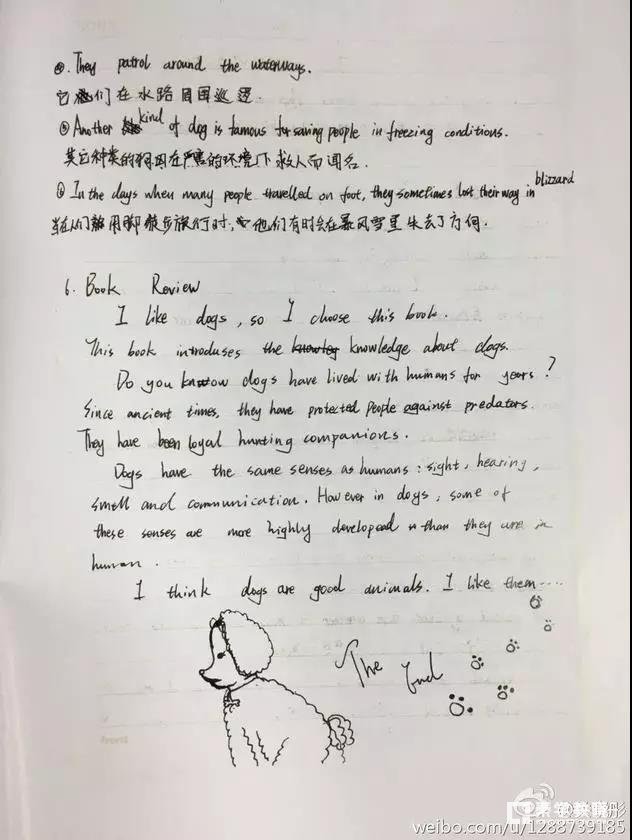 ④. They patrol around the waterways.
它们在水路周围巡逻.
⑤ Another kind of dog is famous for saving people in freezing conditions.
其它种类的狗因在严寒的环境下救人而闻名.
⑥ In the days when many people travelled on foot, they sometimes lost their way in blizzard
当在人们用脚步旅行时, 他们有时会在暴风雪里失去了方向.
6. Book Review
I like dogs, so I choose this book.
This book introduses the knowledge about dogs.
Do you know dogs have lived with humans for years?
Since ancient times, they have protected people against predators.
They have been loyal hunting companions.
Dogs have the same senses as humans: sight, hearing,
smell and communication. However in dogs, some of
these senses are more highly developed than they are in
human.
I think dogs are good animals. I like them....
The End
weibo.com/u/1288739185